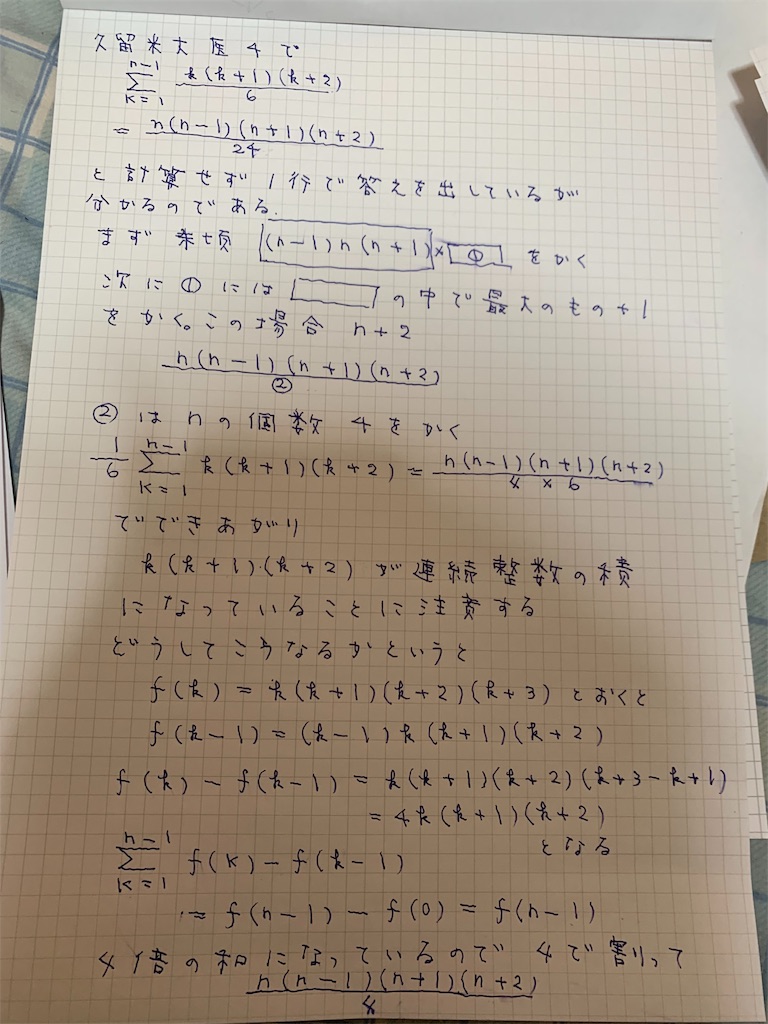 久留米大医4で
n-1
Σ k(k+1)(k+2)/6
k=1
= n(n-1)(n+1)(n+2)/24
と計算せず1行で答えを出しているが
分かるのである.
まず 来た項 (n-1)n(n+1)×① をかく
次に①には□の中で最大のもの+1
をかく。この場合 n+2
n(n-1)(n+1)(n+2)/②
②はnの個数4をかく
1/6 n-1
Σ k(k+1)(k+2) = n(n-1)(n+1)(n+2)/4×6
k=1
でできあがり
k(k+1)(k+2)が連続整数の積
になっていることに注意する
どうしてこうなるかというと
f(k) = k(k+1)(k+2)(k+3) とおくと
f(k-1) = (k-1)k(k+1)(k+2)
f(k)-f(k-1) = k(k+1)(k+2)(k+3-k+1)
= 4k(k+1)(k+2)
となる
n-1
Σ f(k)-f(k-1)
k=1
= f(n-1) - f(0) = f(n-1)
4倍の和になっているので4で割って
n(n-1)(n+1)(n+2)/4